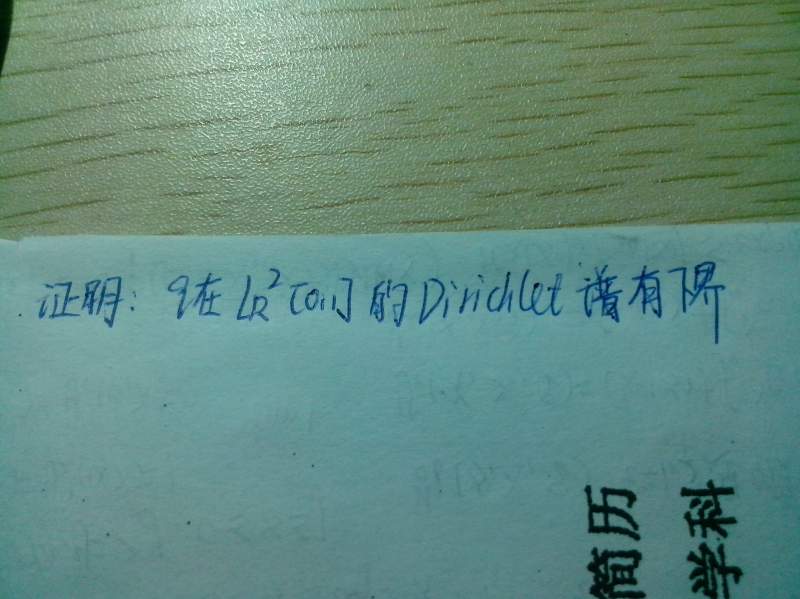 证明: q在 L_R^2[0,1] 的 Dirichlet 谱有下界
简历
学科